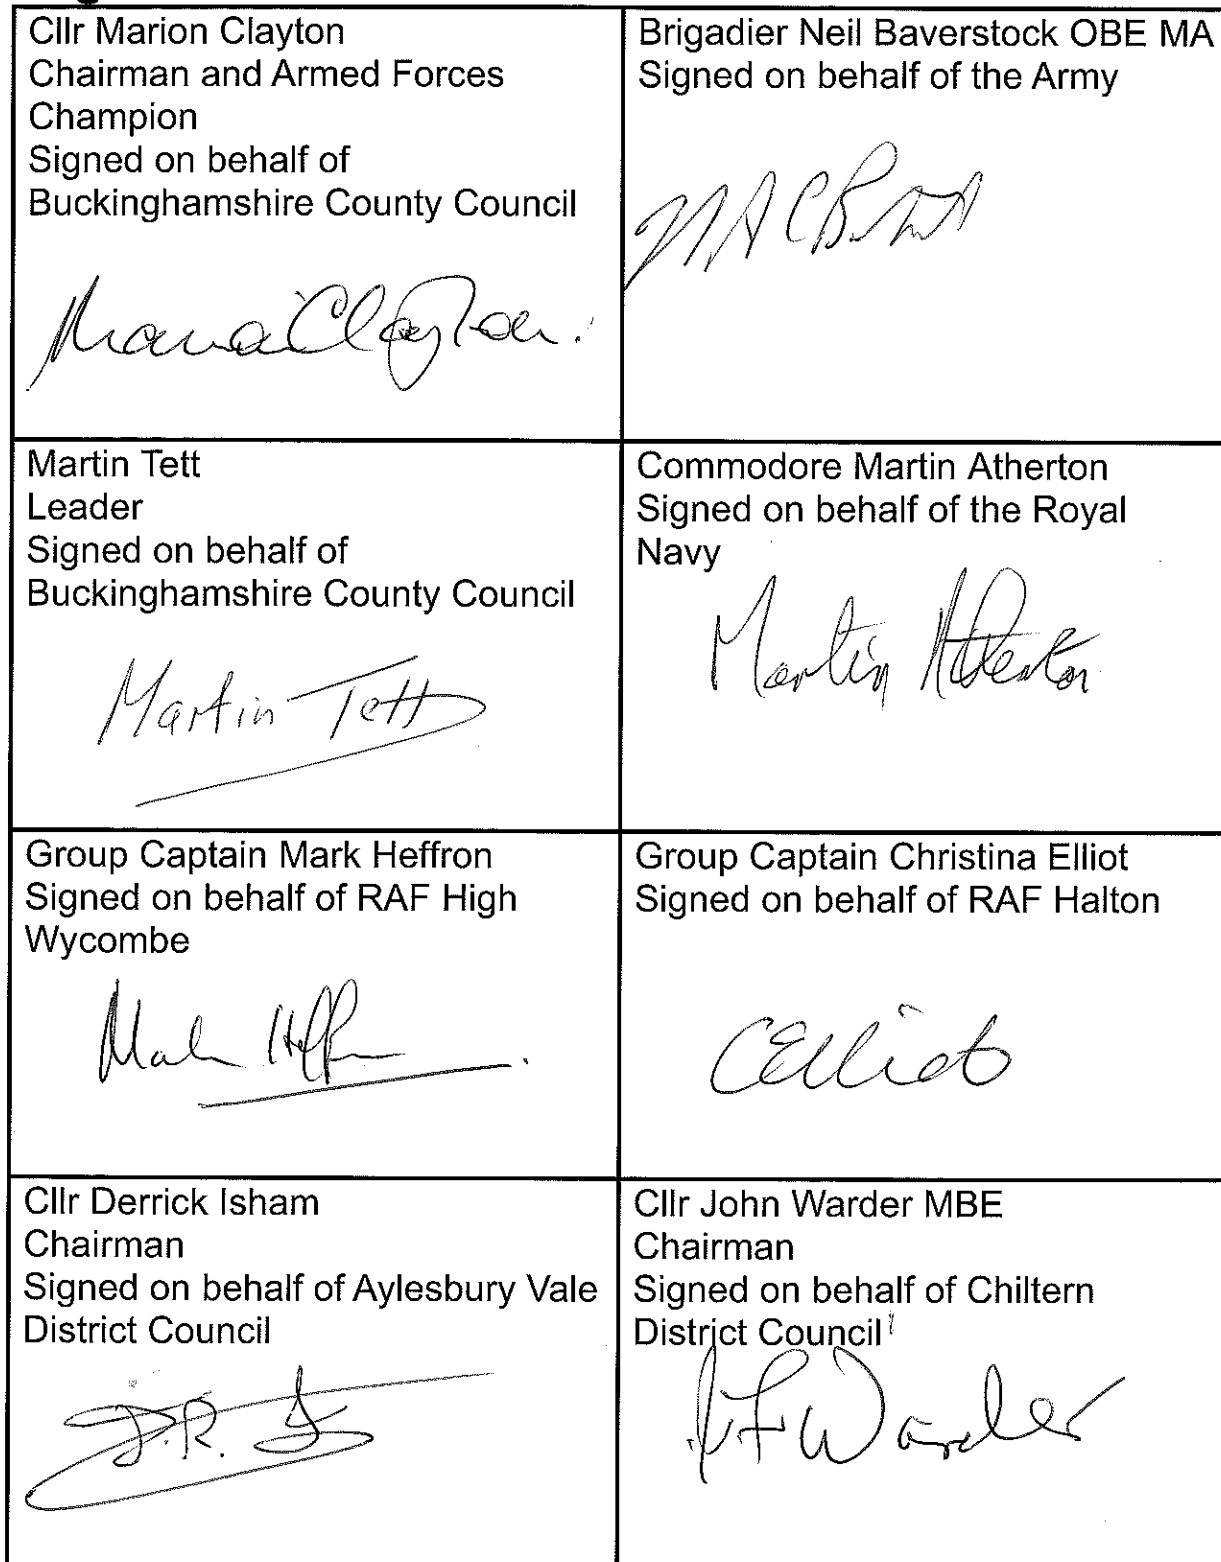 Cllr Marion Clayton
Chairman and Armed Forces
Champion
Signed on behalf of
Buckinghamshire County Council
Clayton
Brigadier Neil Baverstock OBE MA
Signed on behalf of the Army
Martin Tett
Leader
Signed on behalf of
Buckinghamshire County Council
Martin Tett
Commodore Martin Atherton
Signed on behalf of the Royal
Navy
Martin Atherton
Group Captain Mark Heffron
Signed on behalf of RAF High
Wycombe
Group Captain Christina Elliot
Signed on behalf of RAF Halton
CElliot
Cllr Derrick Isham
Chairman
Signed on behalf of Aylesbury Vale
District Council
D.R.
Cllr John Warder MBE
Chairman
Signed on behalf of Chiltern
District Council
Warder